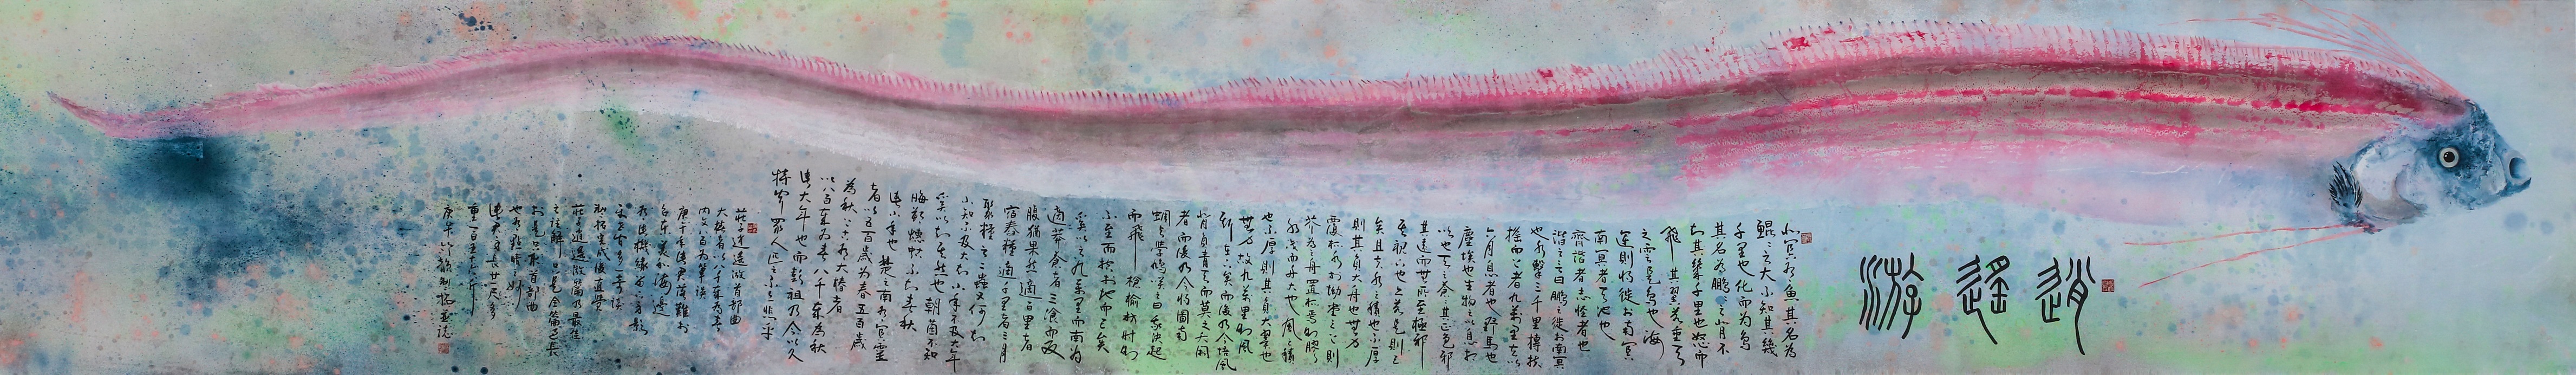 逍遙游
北冥有魚其名為
鯤鯤之大不知其幾
千里也化而為鳥
其名為鵬鵬之背不
知其幾千里也怒而
飛其翼若垂天
之雲是鳥也海
運則將徙於南冥
南冥者天池也
齊諧者志怪者也
諧之言曰鵬之徙於南冥
也水擊三千里摶扶
搖而上者九萬里去以
六月息者也野馬也
塵埃也生物之以息相
吹也天之蒼蒼其正色邪
其遠而無所至極邪
其視下也亦若是則已
矣且夫水之積也不厚
則其負大舟也無力
覆杯水於坳堂之上則
芥為之舟置杯焉則膠
水淺而舟大也風之積
也不厚則其負大翼也
無力故九萬里則風
斯在下矣而後乃今培風
背負青天而莫之夭閼
者而後乃今將圖南
蜩與學鳩笑之曰我決起
而飛槍榆枋時則
不至而控於地而已矣
奚以之九萬里而南為
適莽蒼者三飡而反
腹猶果然適百里者
宿舂糧適千里者三月
聚糧之二蟲又何知
小知不及大知小年不及大年
奚以知其然也朝菌不知
晦朔蟪蛄不知春秋
此小年也楚之南有冥靈
者以五百歲為春五百歲
為秋上古有大椿者
以八百歲為春八千歲為秋
此大年也而彭祖乃今以久
特聞眾人匹之不亦悲乎
莊子逍遙游首部曲
大椿者以八千歲為春
內文八百為筆誤
台東美和海邊
製拓完成後直覺
莊子逍遙游篇乃最佳
之註解只是全篇過長
於是只取首部曲
也有點睛之妙
身長廿一尺多
重一百五十七斤